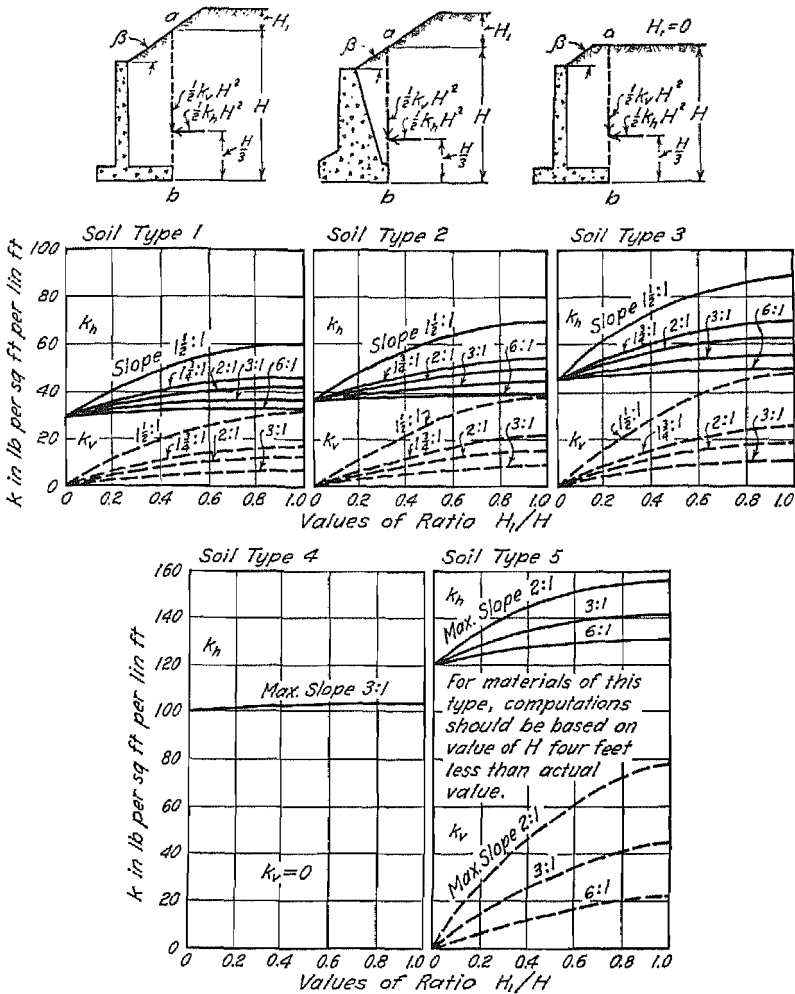 a
β
H₁
½kᵥH²
½kₕH²
H
H/3
b
a
β
H₁
½kᵥH²
½kₕH²
H
H/3
b
a
H₁=0
β
½kᵥH²
½kₕH²
H
H/3
b
k in lb per sq ft per lin ft
Soil Type 1
100
80
60
40
20
0
kₕ
Slope 1½:1
1¾:1
2:1
3:1
6:1
kᵥ
1½:1
1¾:1
2:1
3:1
0 0.2 0.4 0.6 0.8 1.0
Soil Type 2
kₕ
Slope 1½:1
1¾:1
2:1
3:1
6:1
kᵥ
1½:1
1¾:1
2:1
3:1
0 0.2 0.4 0.6 0.8 1.0
Soil Type 3
kₕ
Slope 1½:1
1¾:1
2:1
3:1
6:1
kᵥ
1½:1
1¾:1
2:1
3:1
0 0.2 0.4 0.6 0.8 1.0
Values of Ratio H₁/H
k in lb per sq ft per lin ft
Soil Type 4
160
140
120
100
80
60
40
20
0
kₕ
Max. Slope 3:1
kᵥ=0
0 0.2 0.4 0.6 0.8 1.0
Soil Type 5
kₕ
Max. Slope 2:1
3:1
6:1
For materials of this
type, computations
should be based on
value of H four feet
less than actual
value.
kᵥ
Max. Slope 2:1
3:1
6:1
0 0.2 0.4 0.6 0.8 1.0
Values of Ratio H₁/H